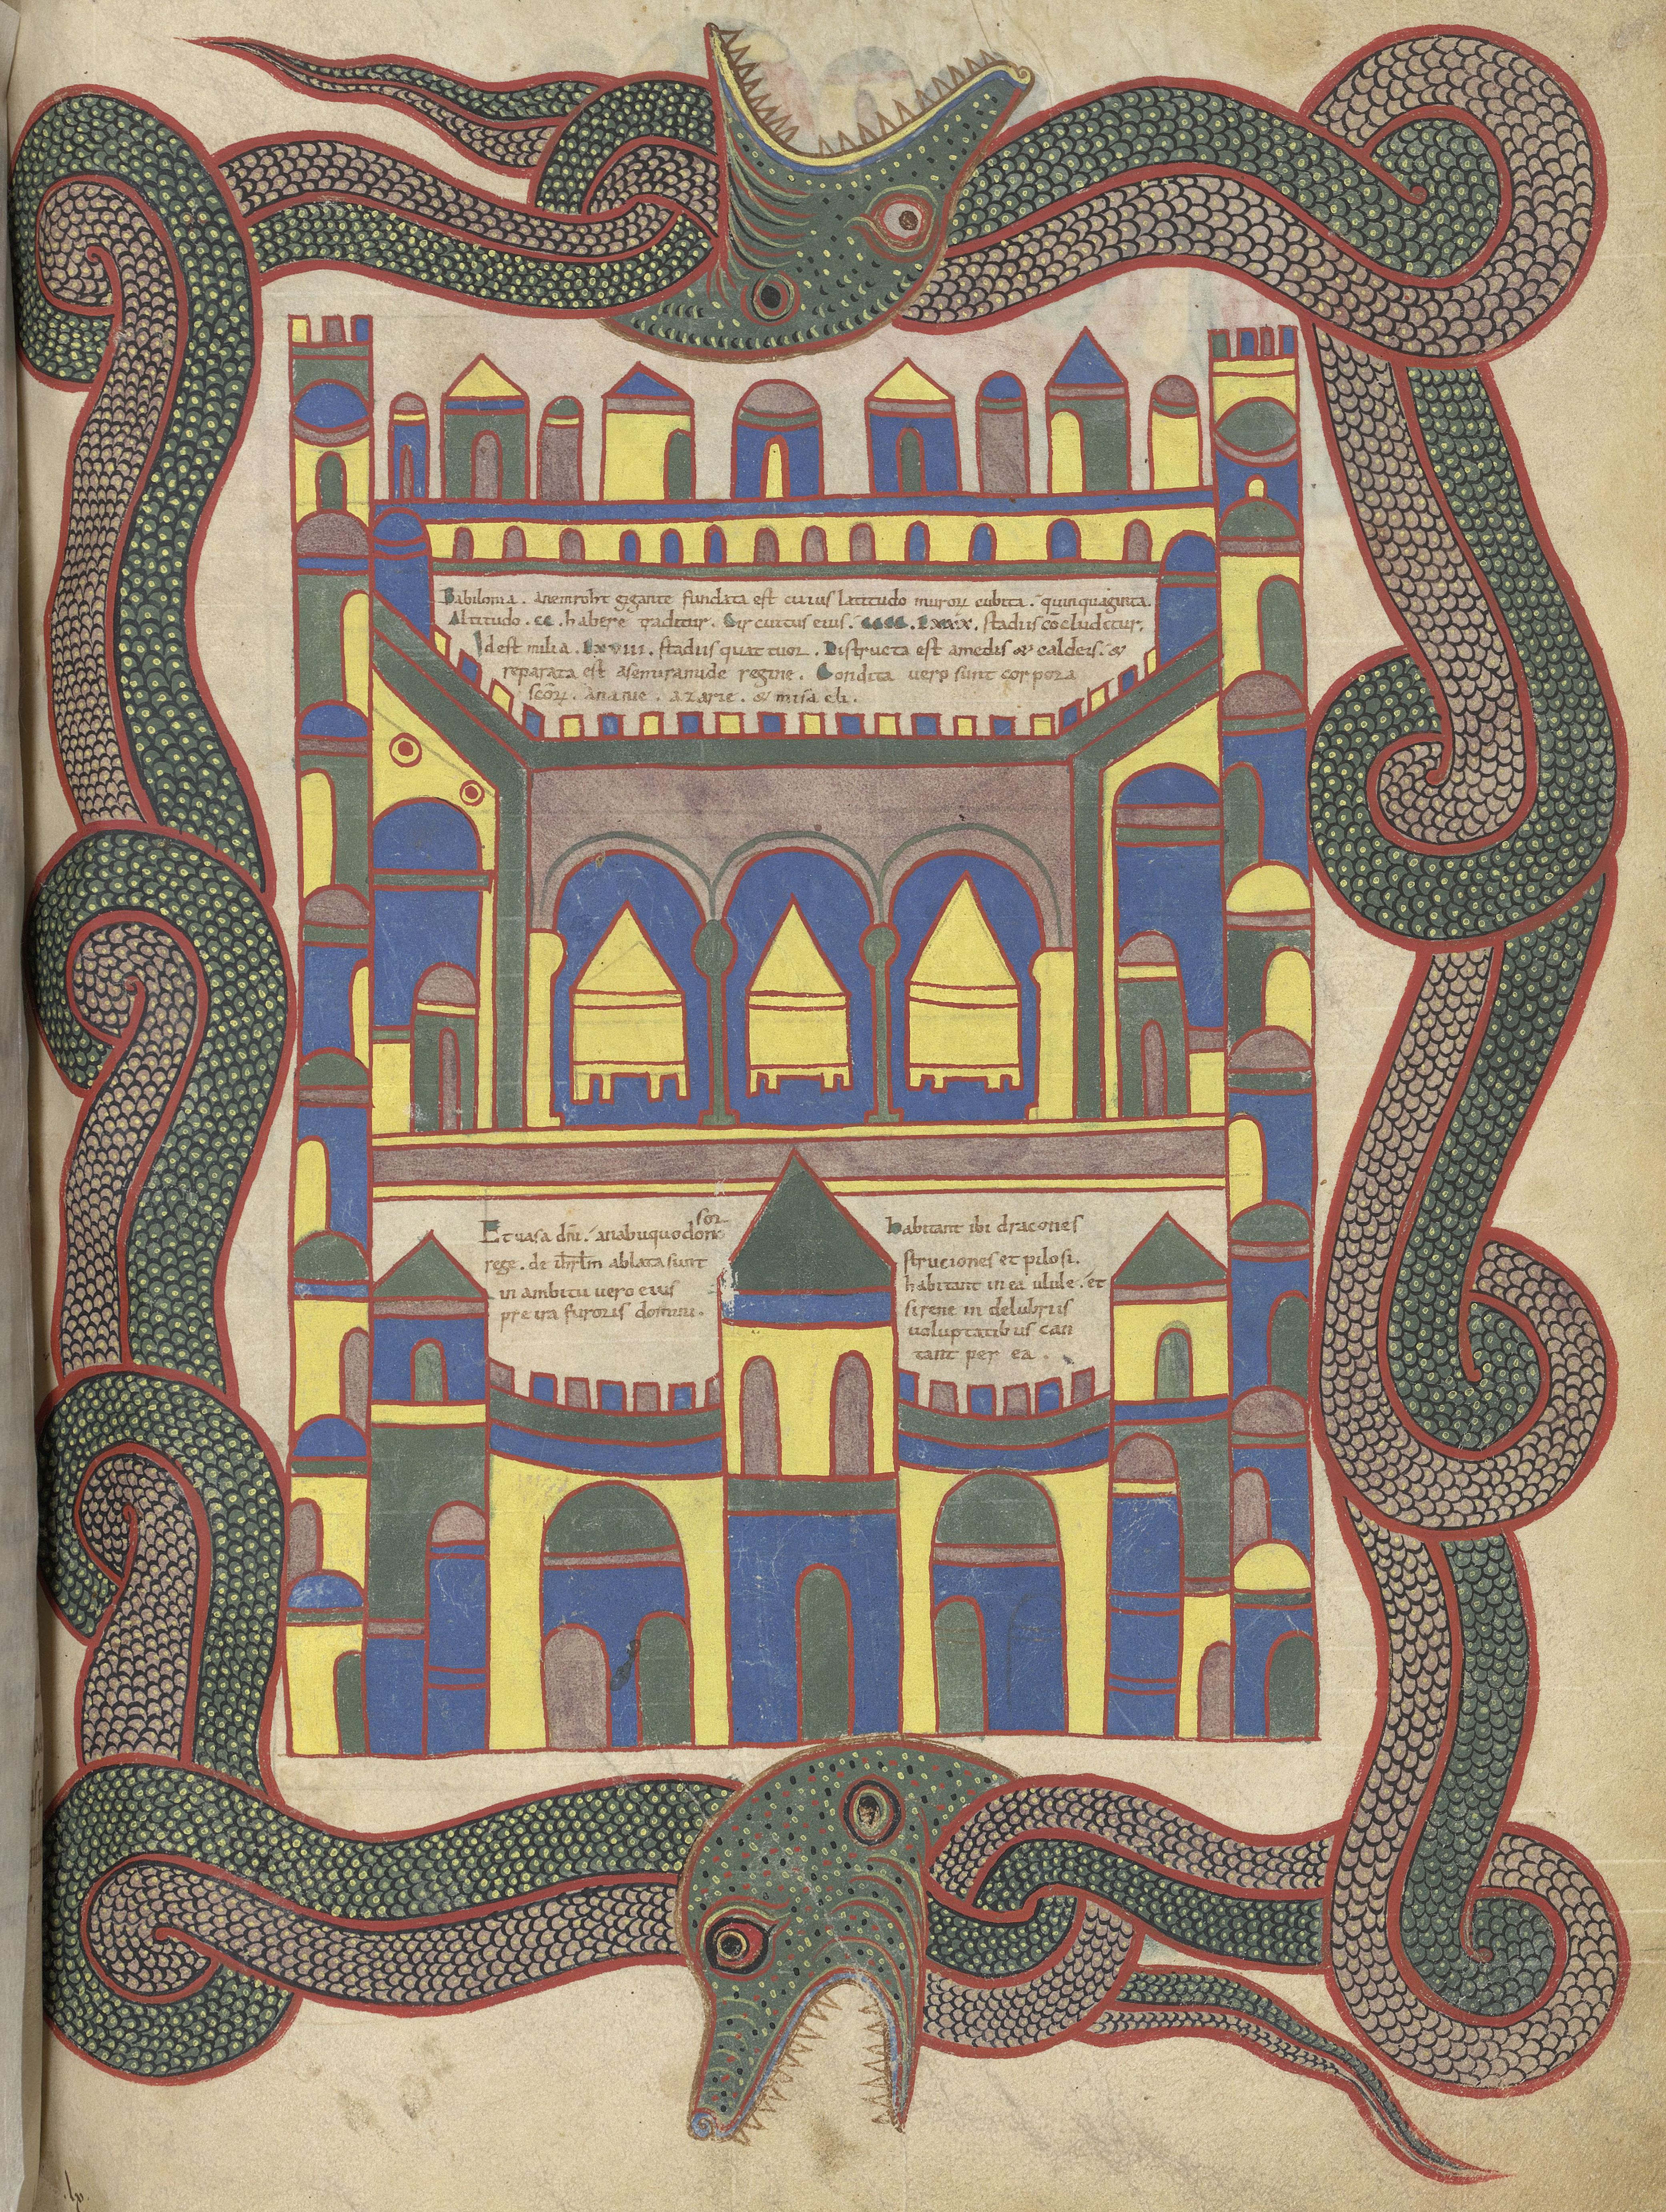 Babilonia . anemroht gigante fundata est cuius latitudo muroꝝ cubita . quinquaginta.
Altitudo . cc . habere traditur . Circuitus eius . cccc . lxxx . stadiis cōcluditur.
Idest milia . lxviii . stadiis quattuor . Distructa est amedis & caldeis . &
reparata est asemiramide regine . Condita vero sunt corpora
scōꝝ . ananie . azarie . & misaeli .
sor
Et vasa dn̄i . anabuquodono
rege . de ihr̄lm̄ ablata sunt
in ambitu vero eius
pre ira furoris domini .
habitant ibi dracones
struciones et pilosi .
habitant in ea ulule . et
sirene in delubris
voluptatibus can
tant per ea .